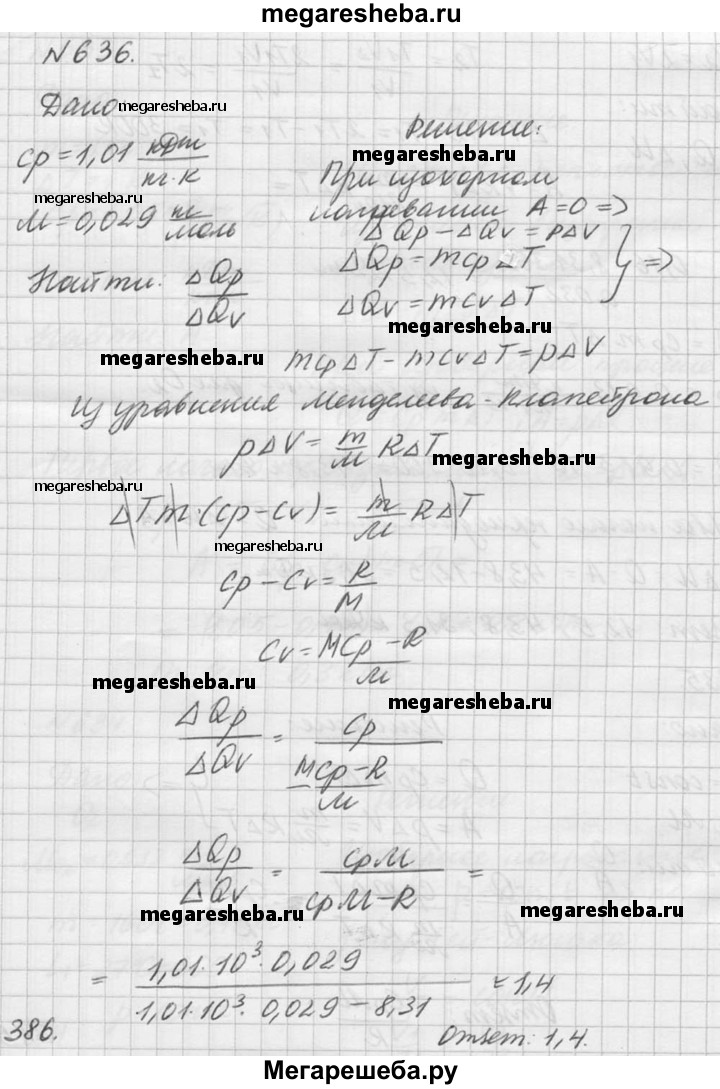 megaresheba.ru
N 636.
Дано
megaresheba.ru
Решение:
cp = 1,01 кДж/кг·К
megaresheba.ru
При изохорном
megaresheba.ru
нагревании A = 0 =>
M = 0,029 кг/моль
ΔQp − ΔQv = pΔV
ΔQp = mcpΔT } =>
Найти: ΔQp/ΔQv
ΔQv = mcvΔT
megaresheba.ru
megaresheba.ru
mcpΔT − mcvΔT = pΔV
Из уравнения Менделеева-Клапейрона
pΔV = m/M RΔT
megaresheba.ru
megaresheba.ru
ΔTm·(cp − cv) = m/M RΔT
megaresheba.ru
cp − cv = R/M
cv = Mcp − R/M
megaresheba.ru
megaresheba.ru
ΔQp/ΔQv = cp/(Mcp − R/M)
ΔQp/ΔQv = cpM/cpM − R =
megaresheba.ru
megaresheba.ru
= 1,01·10³·0,029/1,01·10³·0,029 − 8,31 = 1,4
386.
Ответ: 1,4.
Мегарешеба.ру